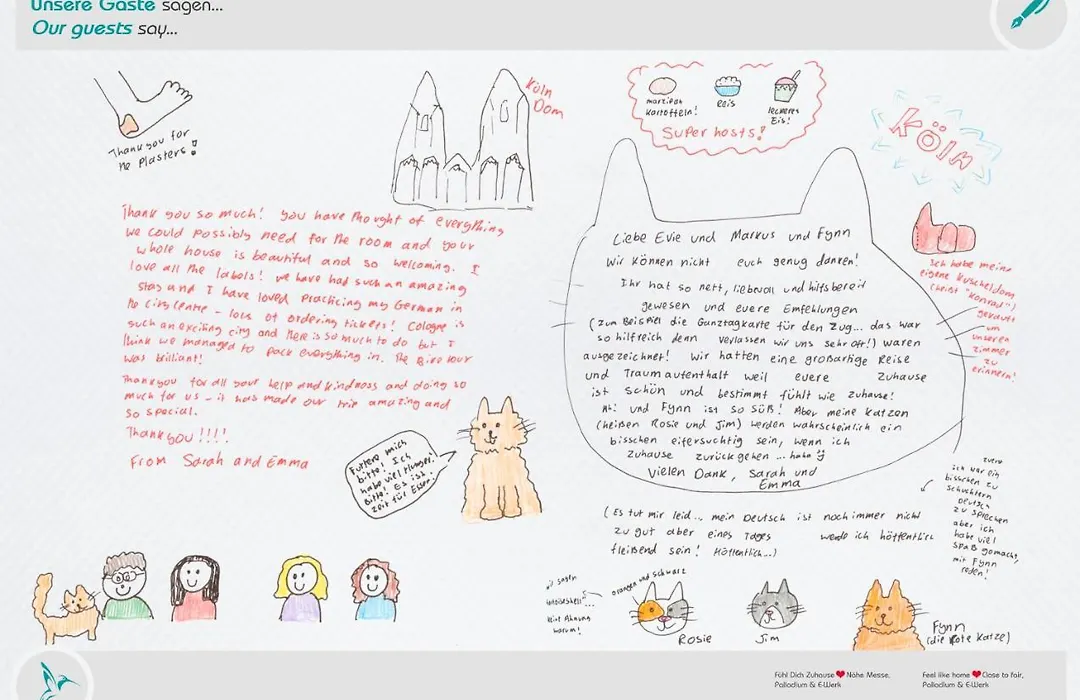 Unsere Gäste sagen...
Our guests say...
Thank you for
the Plasters!
Köln
Dom
marzipan
kartoffeln!
Reis
leckeres
Eis!
Super hosts!
Köln
Thank you so much! you have thought of everything
we could possibly need for the room and your
whole house is beautiful and so welcoming. I
love all the labels! we have had such an amazing
stay and I have loved practicing my German in
the city centre - lots of ordering tickets! Cologne is
such an exciting city and there is so much to do but I
think we managed to pack everything in. The Biertour
was brilliant!
Thankyou for all your help and kindness and doing so
much for us - it has made our trip amazing and
so special.
Thankyou!!!!
From Sarah and Emma
Füttere mich
bitte! Ich
habe viel Hunger!
Bitte! Es ist
zeit für Essen!
Liebe Evie und Markus und Fynn
Wir können nicht euch genug danken!
Ihr hat so nett, liebevoll und hilfsbereit
gewesen und euere Emfehlungen
(zum Beispiel die Ganztagkarte für den Zug... das war
so hilfreich denn verlassen wir uns sehr oft!) waren
ausgezeichnet! wir hatten eine großartige Reise
und Traumaufenthalt weil euere Zuhause
ist schön und bestimmt fühlt wie zuhause!
Ah! und Fynn ist so süß! Aber meine Katzen
(heißen Rosie und Jim) werden wahrscheinlich ein
bisschen eifersuchtig sein, wenn ich
zuhause zurückgehen ... haha
Vielen Dank, Sarah und
Emma
Ich habe meine
eigene Kuscheldom
(heißt "Konrad")
gekauft
um
unseren
zimmer
zu
erinnern!
(Es tut mir leid... mein Deutsch ist noch immer nicht
zu gut aber eines Tages werde ich höffentlich
fleißend sein! Höffentlich...)
ich war ein
bisschen zu
schuchtern
Deutsch
zu sprechen
aber ich
habe viel
spaß gemacht,
mit Fynn
reden!
wir sagen
keine Ahnung
warum!
orangen und schwarz
Rosie
Jim
Fynn
(die rote Katze)
Fühl Dich Zuhause ❤ Nähe Messe,
Palladium & E-Werk
Feel like home ❤ Close to fair,
Palladium & E-Werk